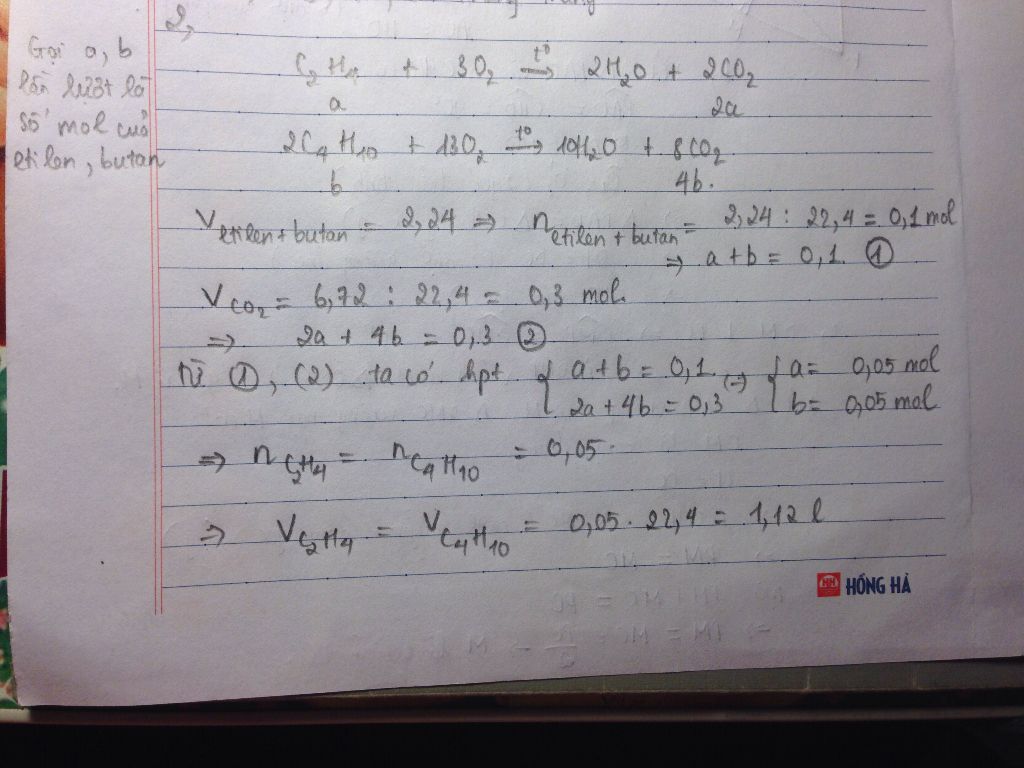 2,
Gọi a, b
lần lượt là
số mol của
etilen, butan
C₂H₄ + 3O₂ →(t⁰) 2H₂O + 2CO₂
a 2a
2C₄H₁₀ + 13O₂ →(t⁰) 10H₂O + 8CO₂
b 4b.
V etilen + butan = 2,24 ⇒ n etilen + butan = 2,24 : 22,4 = 0,1 mol
⇒ a + b = 0,1. ①
V CO₂ = 6,72 : 22,4 = 0,3 mol.
⇒ 2a + 4b = 0,3 ②
Từ ①, (2) ta có hpt { a + b = 0,1 (=) { a = 0,05 mol
2a + 4b = 0,3 b = 0,05 mol
⇒ n C₂H₄ = n C₄H₁₀ = 0,05.
⇒ V C₂H₄ = V C₄H₁₀ = 0,05 . 22,4 = 1,12 l
HỒNG HÀ